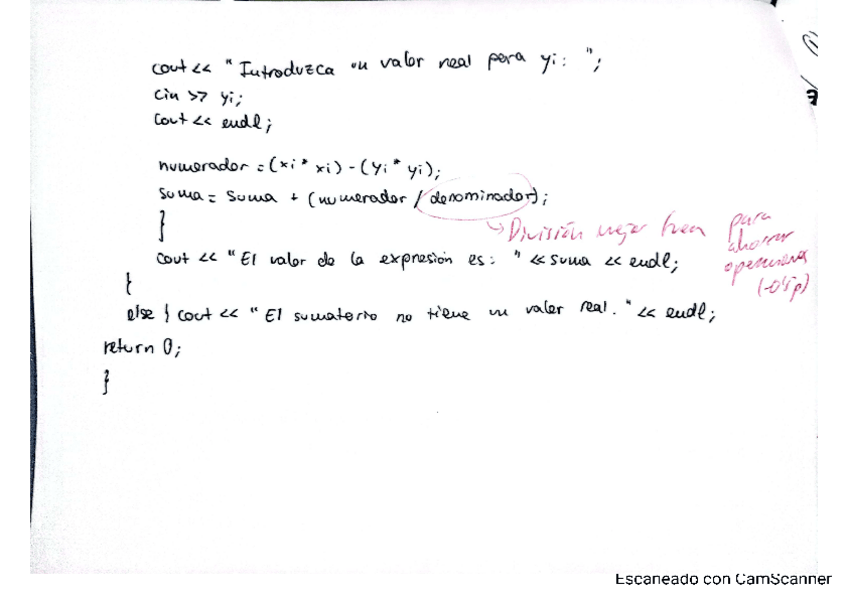 cout << "Introduzca un valor real para yi: ";
cin >> yi;
cout << endl;
numerador = (xi * xi) - (yi * yi);
suma = suma + (numerador / denominador);
}
División mejor fuera para
ahorrar
operaciones
cout << "El valor de la expresión es: " << suma << endl;
}
else { cout << "El sumatorio no tiene un valor real. " << endl;
return 0;
}
Escaneado con CamScanner